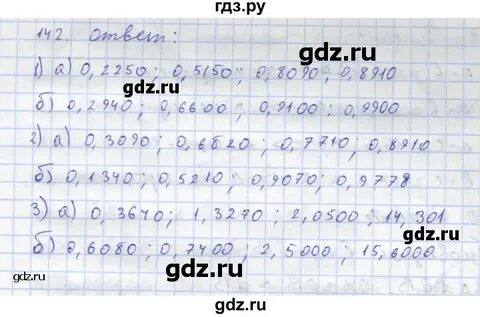 гдз.ру
142. Ответ:
gdz.ru gdz.ru
1) а) 0,2250; 0,5150; 0,8090; 0,8910
б) 0,2940; 0,6600; 0,9100; 0,9900
gdz.ru gdz.ru
2) а) 0,3090; 0,6820; 0,7710; 0,8910
б) 0,1340; 0,5210; 0,9070; 0,9778
gdz.ru
3) а) 0,3640; 1,3270; 2,0500; 14,301
б) 0,6080; 0,7400; 2,5000; 15,6000
gdz.ru gdz.ru
gdz.ru